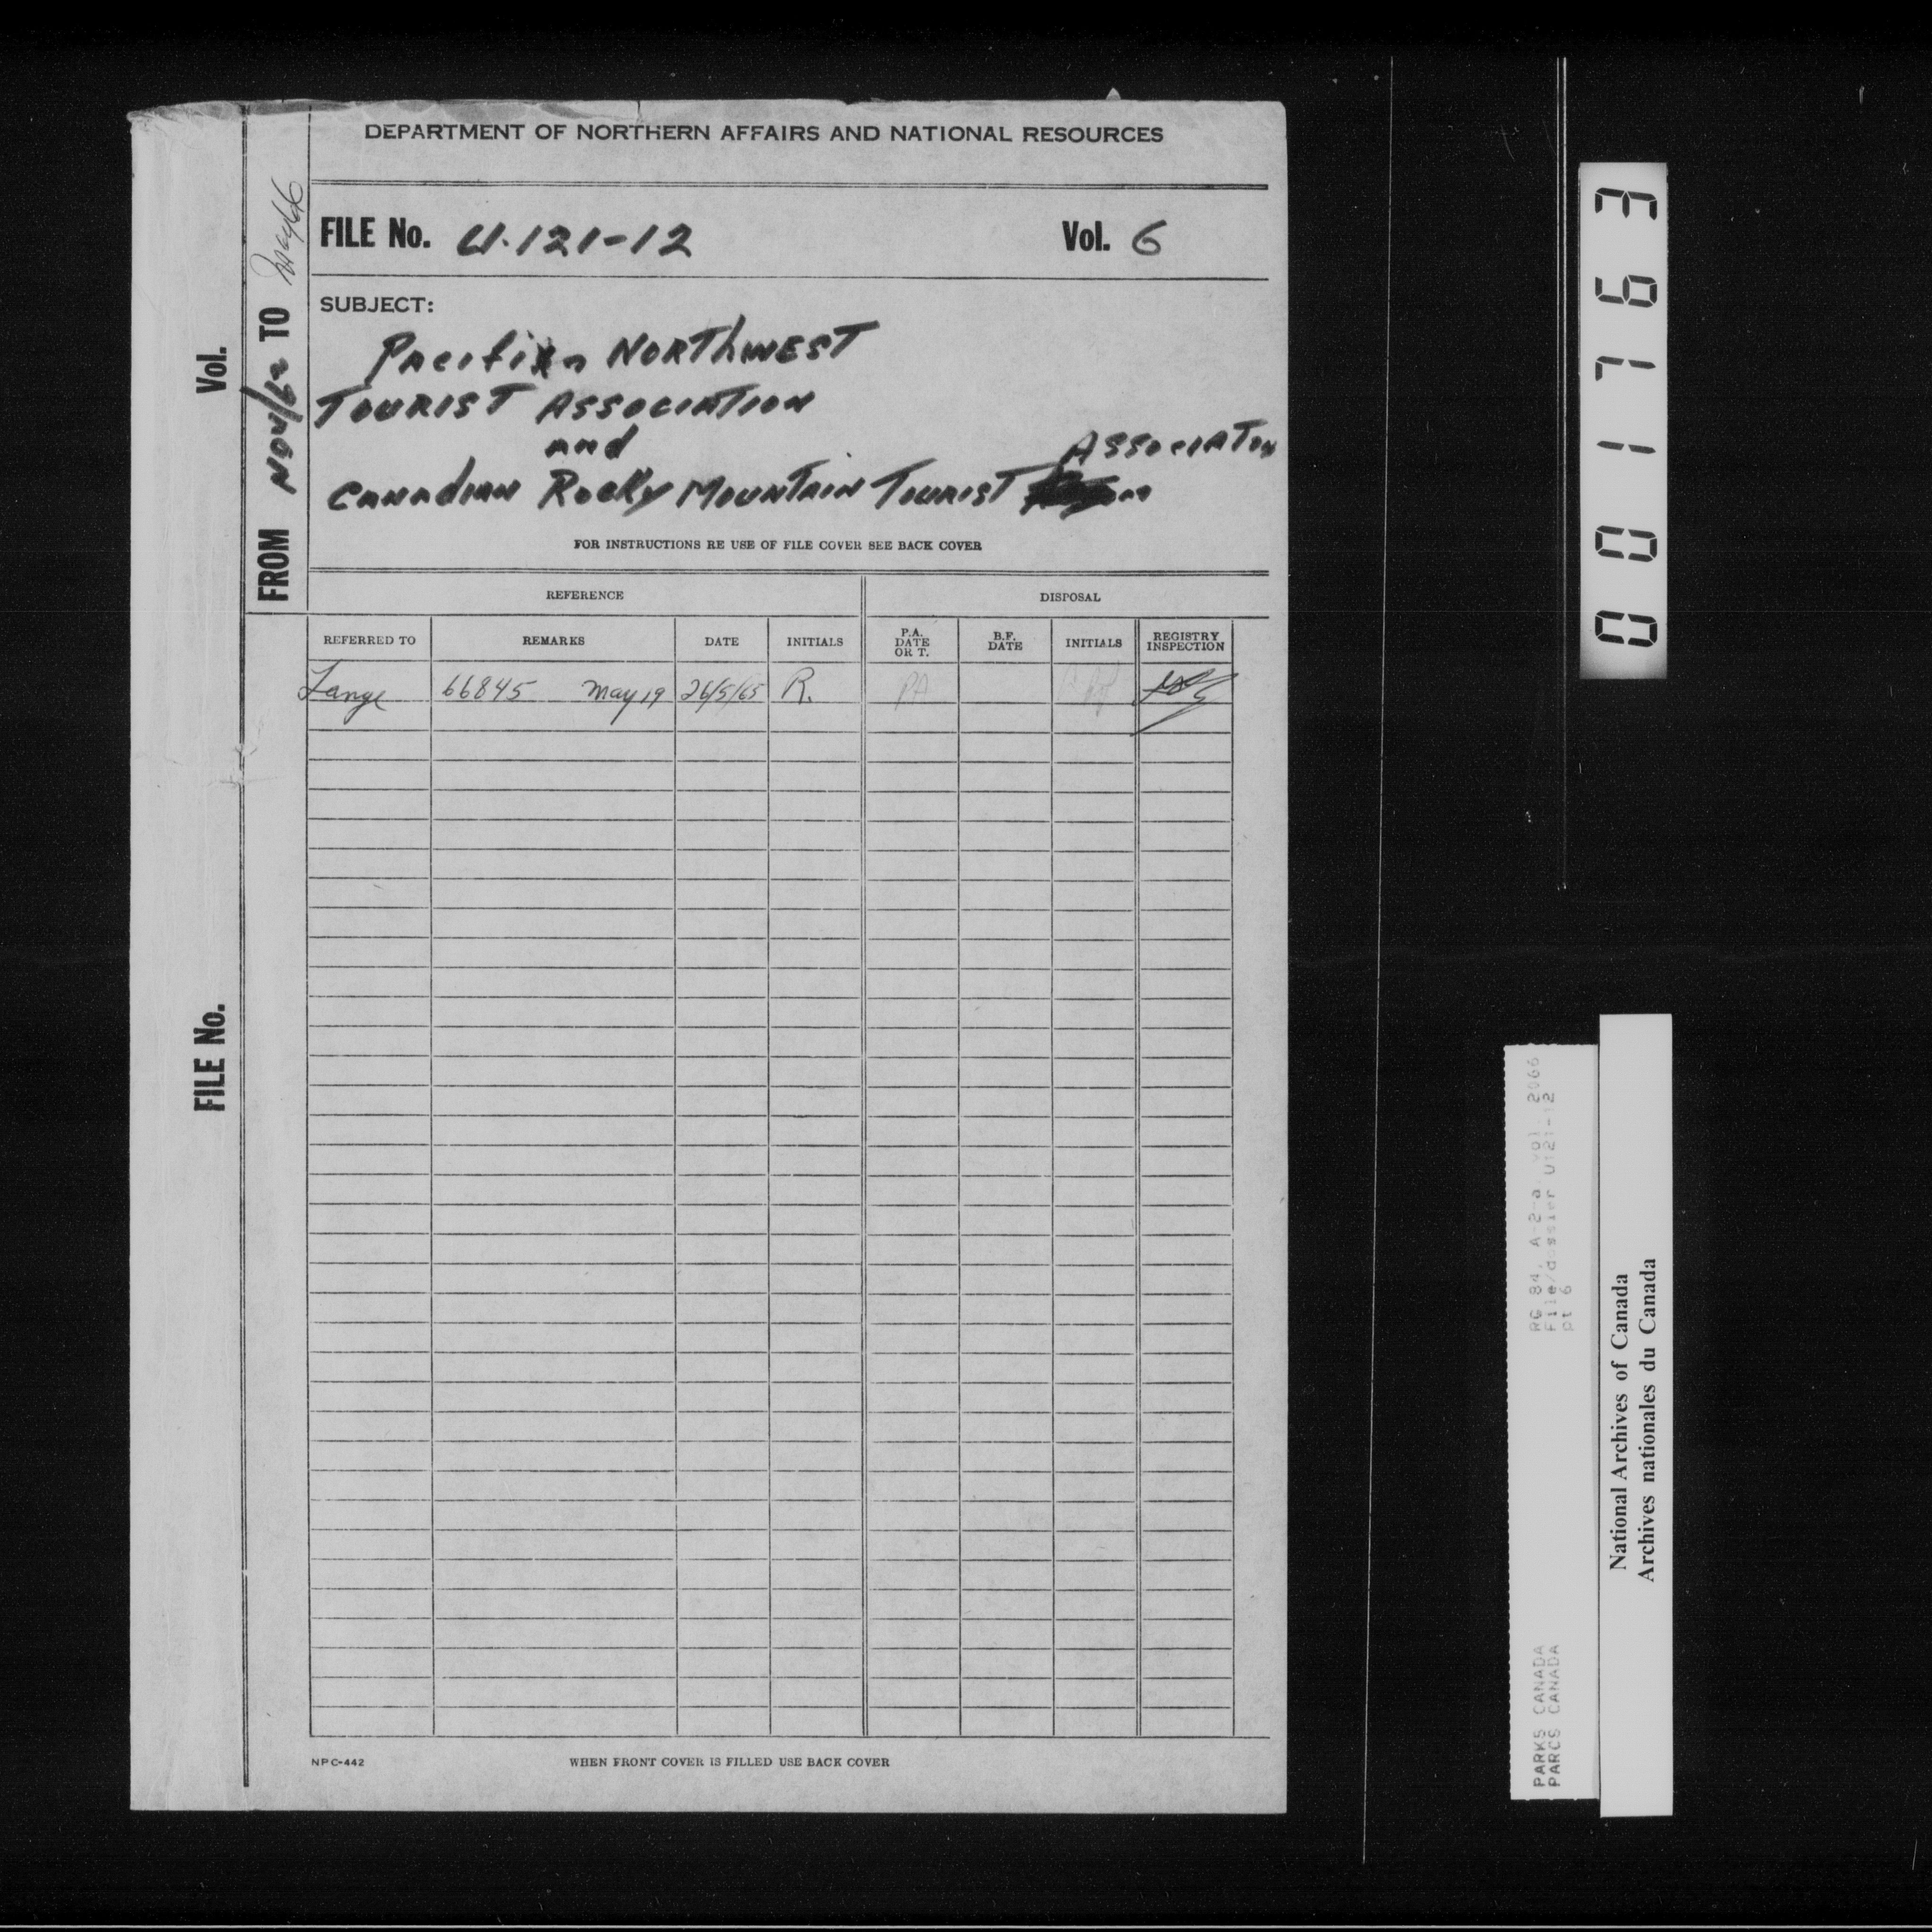 DEPARTMENT OF NORTHERN AFFAIRS AND NATIONAL RESOURCES
FILE No. U.121-12 Vol. 6
SUBJECT:
NORTHWEST
TOURIST ASSOCIATION
and
ASSOCIATION
CANADIAN ROCKY MOUNTAIN TOURIST
FOR INSTRUCTIONS RE USE OF FILE COVER SEE BACK COVER
REFERENCE DISPOSAL
REFERRED TO REMARKS DATE INITIALS P.A. DATE OR T. B.F. DATE INITIALS REGISTRY INSPECTION
Lange 66845 May 19 26/5/65 R. PA
NPC-442 WHEN FRONT COVER IS FILLED USE BACK COVER
FROM Nov/62 TO May/66
Vol.
FILE No.
001763
RG 84, A-2-a, vol. 2066
File/dossier U121-12
pt 6
PARKS CANADA
PARCS CANADA
National Archives of Canada
Archives nationales du Canada